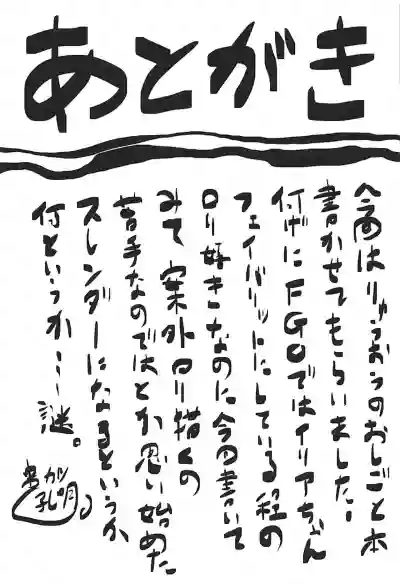 あとがき
今回はりゅうおうのおしごと本
書かせてもらいました！
付けにFGOではイリアちゃん
フェイバリットにしている程の
ロリ好きなのに今回書いて
みて案外ロリ描くの
苦手なのではとか思い始めた
スレンダーになるというか
何というか…謎。